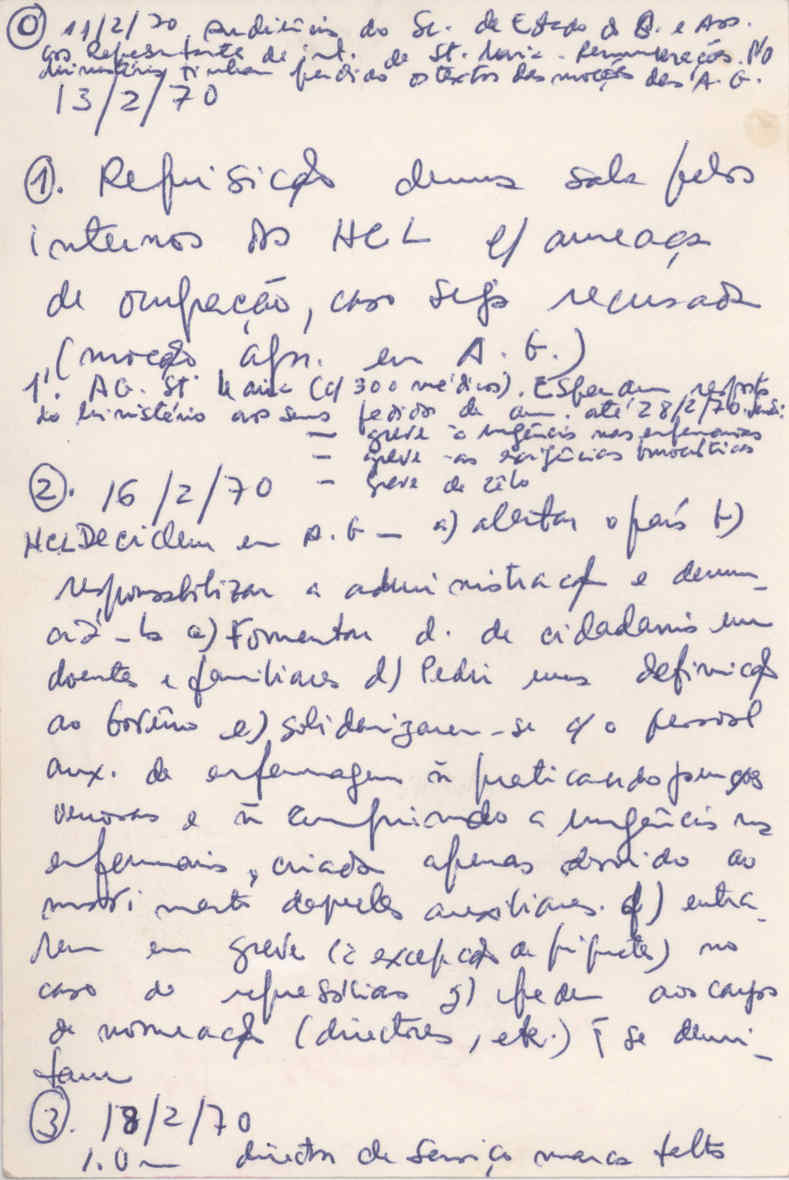 ⓪ 11/2/70 audiência do Sc. de Estado do O. e Aos.
aos representantes de int. de St. Maria - Remunerações. No
Ministério tinham perdido os textos das moções das A. G.
13/2/70
①. Requisição duma sala pelos
internos dos HCL c/ ameaça
de ocupação, caso seja recusada
(moção apr. em A. G.)
1ª. AG. St Maria (c/ 300 médicos). Esperam resposta
do Ministério aos seus pedidos de até 28/2/70.
— greve à urgência nas enfermarias
— greve às exigências burocráticas
— Greve de zêlo
②. 16/2/70
HCL Decidem em A. G — a) alertar o país b)
responsabilizar a administração e denun-
ciá-la c) Fomentar d. de cidadania em
doentes e familiares d) Pedir uma definição
ao Govêrno e) solidarizarem-se c/ o pessoal
aux. de enfermagem ñ praticando punções
venosas e ñ cumprindo a urgência nas
enfermarias, criada apenas devido ao
movimento daqueles auxiliares. f) entra-
rem em greve (à excepção de piquetes) no
caso de represálias g) pedem aos cargos
de nomeação (directores, etc.) q̃ se demi-
tam
③. 18/2/70
1.0 — director de Serviço marca falta